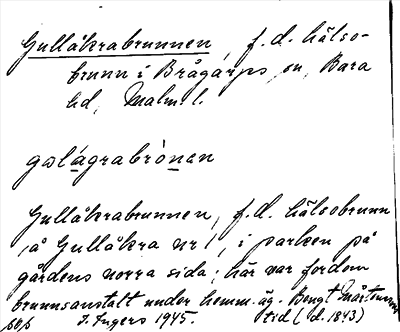 Gullåkrabrunnen, f.d. hälso-
brunn i Brågarps sn, Bara
hd, Malm. l.
gɷlágrabrònən
Gullåkrabrunnen, f.d. hälsobrunn
å Gullåkra nr 1, i parken på
gårdens norra sida; här var fordom
brunnsanstalt under hemm. äg. Bengt Mårtenssons
I. Ingers 1945. tid (d. 1843)